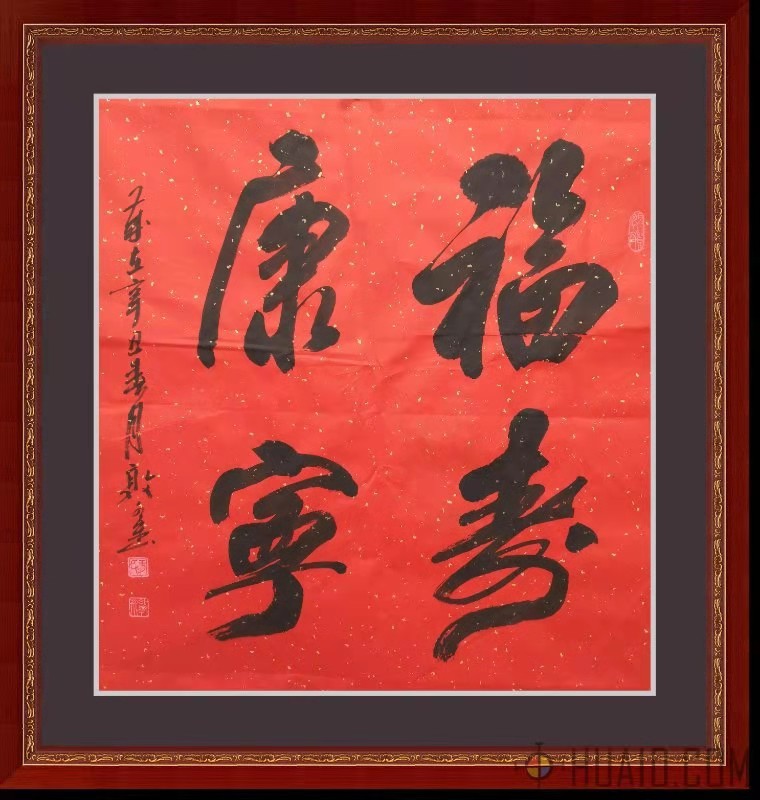 福寿
康宁
岁在辛丑
HUAID.COM